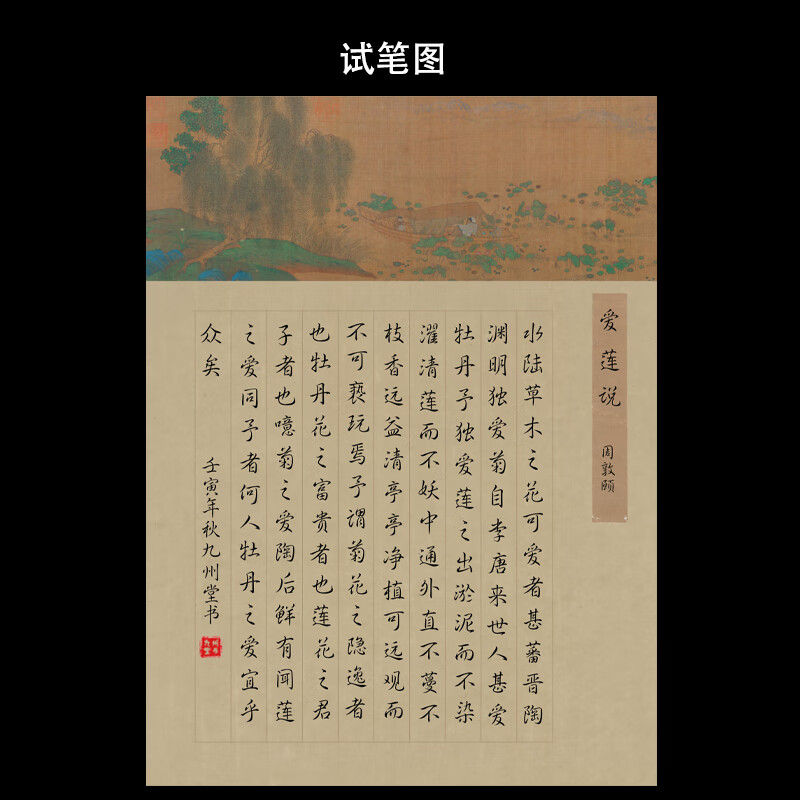 试笔图
爱莲说
周敦颐
水陆草木之花可爱者甚蕃晋陶
渊明独爱菊自李唐来世人甚爱
牡丹予独爱莲之出淤泥而不染
濯清莲而不妖中通外直不蔓不
枝香远益清亭亭净植可远观而
不可亵玩焉予谓菊花之隐逸者
也牡丹花之富贵者也莲花之君
子者也噫菊之爱陶后鲜有闻莲
之爱同予者何人牡丹之爱宜乎
众矣
壬寅年秋九州堂书